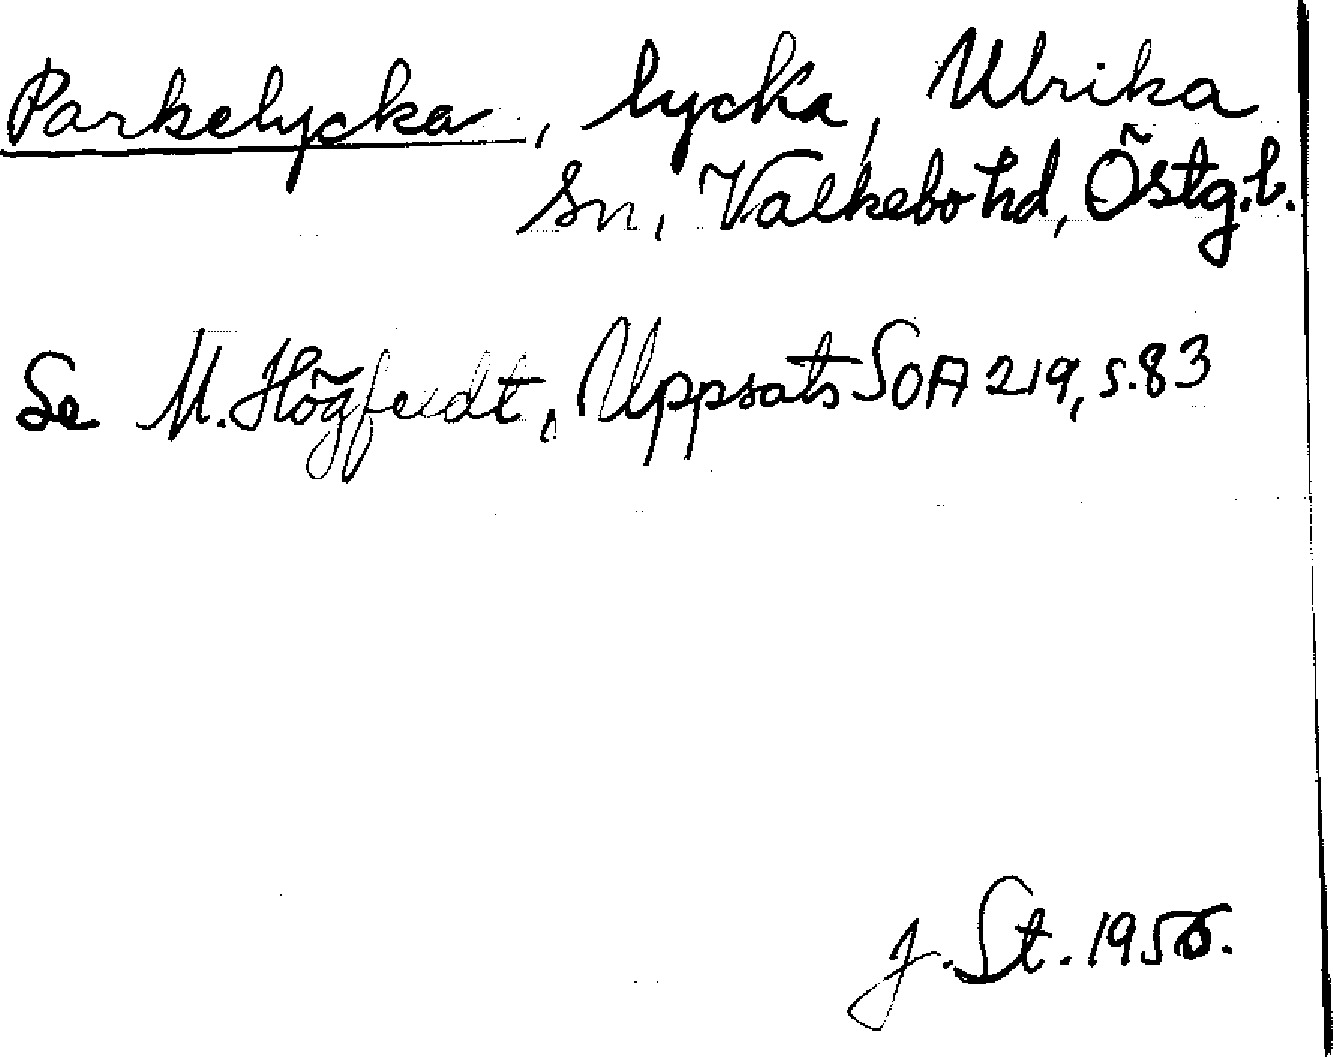 Parkelycka, lycka, Ulrika
sn, Valkebo hd, Östg.l.
Se M. Högfeldt, Uppsats SOA 219, s. 83
J. St. 1955.